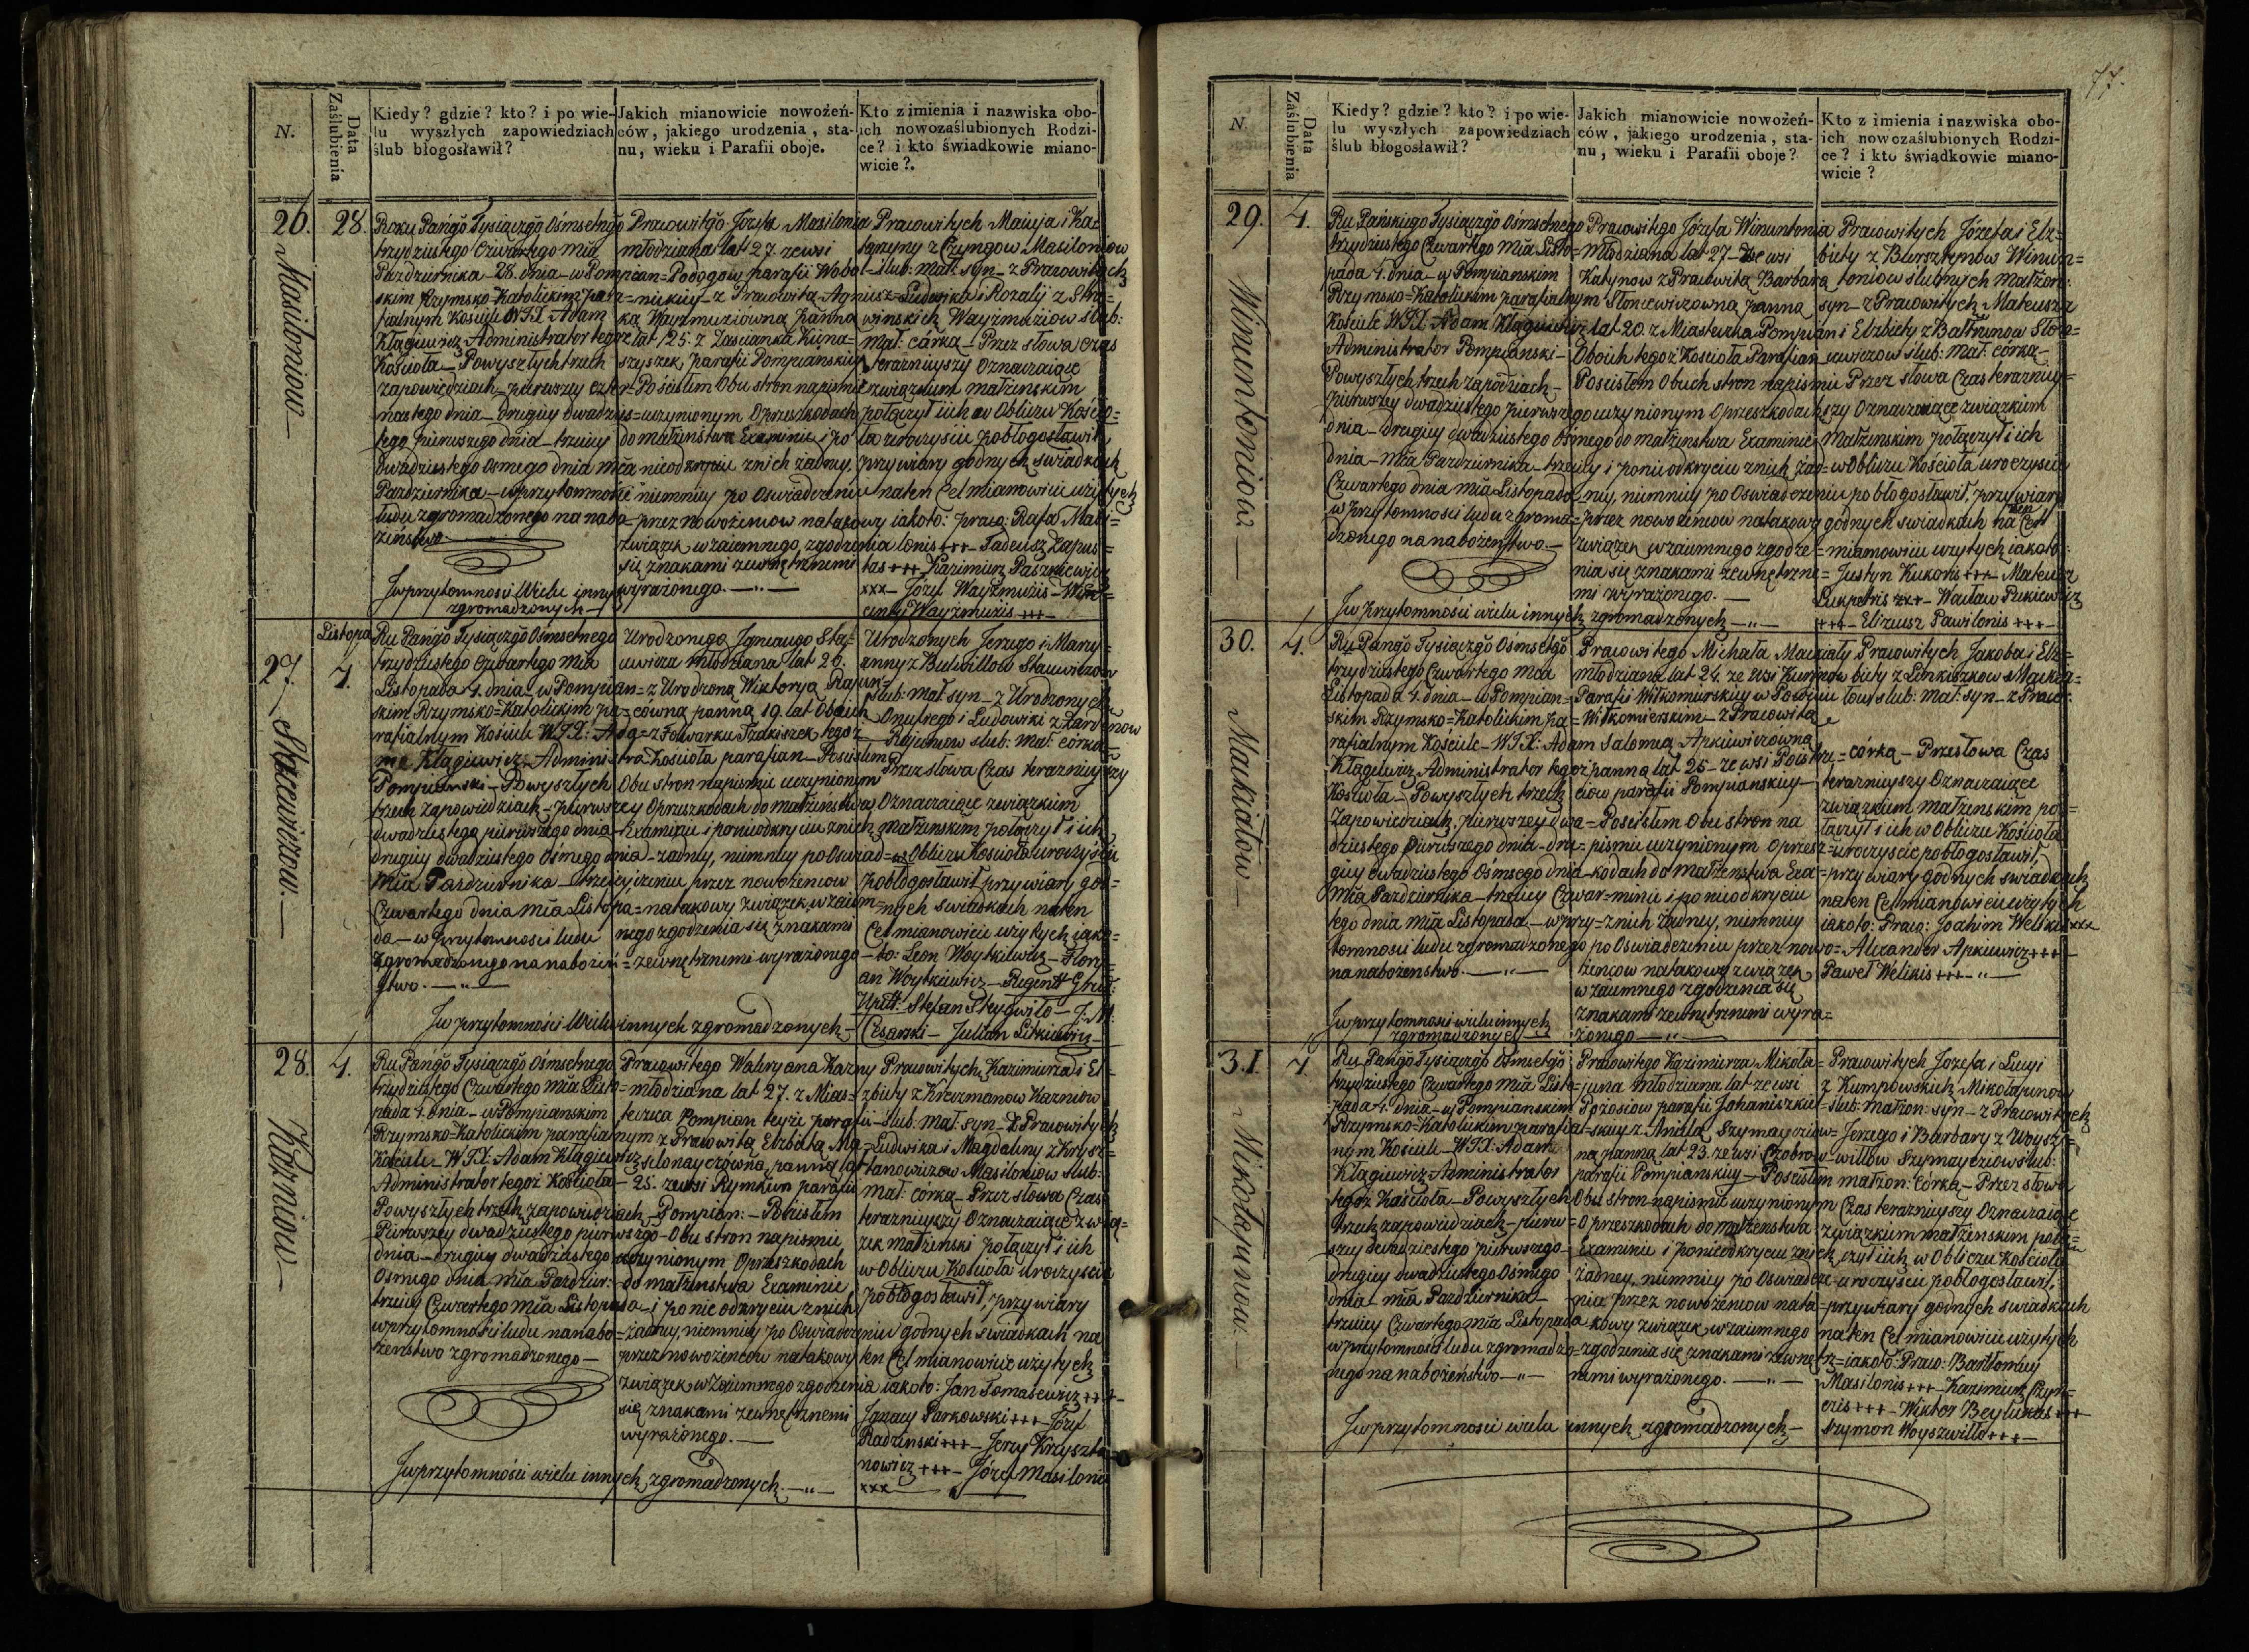 77.
N.
Data
Zaślubienia
Kiedy? gdzie? kto? i po wie-
lu wyszłych zapowiedziach
ślub błogosławił?
Jakich mianowicie nowożeń-
ców, jakiego urodzenia, sta-
nu, wieku i Parafii oboje.
Kto z imienia i nazwiska obo-
ich nowozaślubionych Rodzi-
ce? i kto świadkowie miano-
wicie?.
26.
Masiloniow
28.
Roku Pańgo Tysiączgo Ośmsetnego
trzydziestego Czwartego Mia
Pazdziernika 28. dnia w Pompian=
skim Rzymsko-Katolickim para=
fialnym Kościele WJX Adam
Kłągiewicz Administrator tegoż
Kościoła Powyszłych trzech
zapowiedziach pierwszey czter=
nastego dnia drugiey dwadzies=
tego pierwszego dnia trzeciey
dwadziestego osmego dnia mca
Pazdziernika w przytomności
ludu zgromadzonego na nabo=
żeństwo
Pracowitego Józefa Masilonia
młodziana lat 27. ze wsi
Podogow parafii Wobol=
nickiey z Pracowitą Agniesz=
ką Wayzmuziowną panną
lat 25. z Zascianka Kiena=
szyszek parafii Pompianskiey
Po ścisłem Obu stron na pismie
uczynionym O przeszkodach
do małżenstwa Examinie i po
nieodkryciu z nich żadney,
niemniey po Oswiadczeniu
przez nowożencow na takowy
związek wzaiemnego zgodzenia
się znakami zewnętrznemi
wyrażonego.
Pracowitych Macieja i Ka=
tarzyny z Czyngow Masiloniow
ślub: mał: syn z Pracowitych
Ludwika i Rozalij z Strze=
winskich Wayzmuziow ślub:
mał: córka Przez słowa czas
terazniyszy Oznaczaiące
związkiem małżenskim
połączył i ich w Obliczu Kościo=
ła uroczyscie pobłogosławił
przy wiary godnych swiadkach
na ten Cel mianowicie użytych
iakoto: praco: Rafał Masi=
lonis +++ Tadeusz Łapus=
tas +++ Kazimierz Paszkiewicz
xxx Józef Wayzmuzis Win=
centy Wayzmuzis +++
I w przytomnosci Wielu innych
zgromadzonych
Listopa
27.
Stacewiczow
4.
Ru Pańgo Tysiączgo Ośmsetnego
trzydziestego Czwartego Mia
Listopada 4. dnia w Pompian=
skim Rzymsko=Katolickim pa=
rafialnym Kościele WJX: Ada=
m Kłągiewicz Administra
Pompianski Powyszłych
trzech zapowiedziach pierwszey
dwadziestego pierwszego dnia
drugiey dwadziestego Osmego dnia
Mia Pazdziernika trzeciey
Czwartego dnia Mia Listopa=
da w przytomnosci ludu
zgromadzonego na nabożeń=
stwo.
Urodzonego Ignacego Sta=
cewicza młodziana lat 26.
z Urodzoną Wiktoryą Rajun=
cówną panną 19. lat Oboich
z Folwarku tegoż
Kościoła parafian Po ścisłem
Obu stron na pismie uczynionym
O przeszkodach do małżeństwa
Examinie i po nieodkryciu z nich
żadney, niemniey po Oswiad=
czeniu przez nowożencow
na takowy związek wzaiem=
nego zgodzenia się znakami
zewnętrznemi wyrażonego
Urodzonych Jerzego i Mary=
anny z Butwillow Stacewiczow
ślub: mał: syn z Urodzonych
Onufrego i Ludowiki z
ślub: mał: córka
Przez słowa Czas terazniyszy
Oznaczaiące związkiem
małżenskim połączył i ich
w Obliczu Kościoła uroczyście
pobłogosławił przy wiary god=
nych swiadkach na ten
Cel mianowicie użytych iako=
to: Leon Woytkiewicz Flory=
an Woytkiewicz Regent
Stefan Steygwiło J. M.
Cesarski Julian Litkiewicz
I w przytomności Wielu innych zgromadzonych
28.
Kazniow
4.
Ru Pańgo Tysiączgo Ośmsetnego
trzydziestego Czwartego Mia Listo=
pada 4. dnia w Pompianskim
Rzymsko=Katolickim parafialnym
Kościele WJX: Adam Kłągiewicz
Administrator tegoż Kościoła
Powyszłych trzech zapowiedziach
Pierwszey dwadziestego pierwszego
dnia drugiey dwadziestego
Osmego dnia Mia Pazdzier:
trzeciey Czwartego mia Listopada
w przytomności ludu na nabo=
żenstwo zgromadzonego
Pracowitego Waleryana Kazny
młodziana lat 27. z Mias=
teczka Pompian teyże parafii
z Pracowitą Elzbietą Ma=
silonayczówną panną lat
25. ze wsi Rymkun parafii
Pompian: Po ścisłem
Obu stron na pismie
uczynionym O przeszkodach
do małżenstwa Examinie
i po nie odkryciu z nich
żadney, niemniey po Oswiadczeniu
przez nowożencow na takowy
związek wzaiemnego zgodzenia
się znakami zewnętrznemi
wyrażonego.
Pracowitych Kazimierza i El=
zbiety z Kreczmanow Kazniow
ślub: mał: syn z Pracowitych
Ludwika i Magdaleny z Krysz=
tanowiczow Masiloniow ślub:
mał: córka Przez słowa Czas
terazniyszy Oznaczaiące zwią=
zek małżenski połączył i ich
w Obliczu Kościoła uroczyscie
pobłogosławił, przy wiary
godnych swiadkach na
ten Cel mianowicie użytych
iakoto: Jan Tomaszewicz +++
Ignacy Parkowski +++ Józef
Radzinski +++ Jerzy Krzyszta=
nowicz +++ Józef Masilonis
xxx
I w przytomności wielu innych zgromadzonych.
N.
Data
Zaślubienia
Kiedy? gdzie? kto? i po wie-
lu wyszłych zapowiedziach
ślub błogosławił?
Jakich mianowicie nowożeń-
ców, jakiego urodzenia, sta-
nu, wieku i Parafii oboje?
Kto z imienia i nazwiska obo-
ich nowozaślubionych Rodzi-
ce? i kto świadkowie miano-
wicie?
29.
Winuntoniow
4.
Ru Pańskiego Tysiączgo Ośmsetnego
trzydziestego Czwartego Mia Listo=
pada 4. dnia w Pompianskim
Rzymsko=Katolickim parafialnym
Kościele WJX Adam Kłągiewicz
Administrator Pompianski
Powyszłych trzech zapodziach
pierwszey dwadziestego pierwszego
dnia drugiey dwadziestego osmego
dnia Mia Pazdziernika trzeciey
Czwartego dnia Mia Listopada
w przytomnosci ludu zgroma=
dzonego na nabożeństwo.
Pracowitego Józefa Winuntonia
Młodziana lat 27 ze wsi
Katynow z Pracowitą Barbarą
Stoncewiczowną panną
lat 20. z Miasteczka Pompian
Oboich tegoż Kościoła Parafian
Po scisłem Obuch stron na pismie
uczynionym O przeszkodach
do małżenstwa Examinie
i po nieodkryciu z nich żad=
ney, niemniey po Oswiadczeniu
przez nowożencow na takowy
związek wzaiemnego zgodze=
nia się znakami zewnętrzne=
mi wyrażonego.
Pracowitych Józefa i Elz=
biety z Bursztynow Winun=
toniow ślubnych małżon:
syn z Pracowitych Mateusza
i Elzbiety z Bałtrunow Ston=
cewiczow ślub: mał: córka
Przez słowa Czas terazniy=
szy Oznaczaiące związkiem
Małżenskim połączył i ich
w Obliczu Kościoła uroczyscie
pobłogosławił, przy wiary
godnych swiadkach na ten Cel
mianowicie użytych iakoto:
Justyn Kukoris +++ Mateusz
Lukpetris xx+ Wacław Pukiewicz
+++ Elizeusz Pawilonis +++
I w przytomności wielu innych zgromadzonych
30.
Mackiałow
4.
Ru Pańgo Tysiączgo Ośmsetgo
trzydziestego Czwartego Mca
Listopada 4. dnia w Pompian=
skim Rzymsko=Katolickim pa=
rafialnym Kościele WJX: Adam
Kłągiewicz Administrator tegoż
Kościoła Powyszłych trzech
Zapowiedziach, pierwszey dwa=
dziestego Pierwszego dnia dru=
giey dwadziestego Osmsego dnia
Mia Pazdziernika trzeciey Czwar=
tego dnia Mia Listopada w przy=
tomnosci ludu zgromadzonego
na nabożenstwo.
Pracowitego Michała Mackiały
młodziana lat 24. ze wsi Kurmow
Parafii Wiłkomirskiey w Powiecie
Wiłkomierskim z Pracowitą
Salomeą Apkiewiczowną
panną lat 25 ze wsi Poistrze=
ciow parafii Pompianskiey
Po scisłem Obu stron na
pismie uczynionym O przesz=
kodach do Małżenstwa Exa=
minie i po nieodkryciu
z nich żadney, niemniey
po Oswiadczeniu przez nowo=
żencow na takowy związek
wzaiemnego zgodzenia się
znakami zewnętrznemi wyra=
żonego
Pracowitych Jakoba i Elz=
biety z Linkiszkow Mackia=
łow ślub: mał: syn z Praco:
córka Przesłowa Czas
terazniyszy Oznaczaiące
związkiem małżenskim po=
łączył i ich w Obliczu Kościoła
uroczyscie pobłogosławił,
przy wiary godnych swiadkach
na ten Cel mianowicie użytych
iakoto: Praco: Joachim Welikis xxx
Alexander Apkiewicz +++
Paweł Welikis +++
I w przytomnosci wielu innych
zgromadzonych
31.
Mikołajunow.
4
Ru Pańgo Tysiączgo Ośmsetgo
trzydziestego Czwartego Mia Listo=
pada 4. dnia w Pompianskim
Rzymsko=Katolickim parafial=
nym Kościele WJX: Adam
Kłągiewicz Administrator
tegoż Kościoła Powyszłych
trzech zapowiedziach pierw=
szey dwadziestego pierwszego
drugiey dwadziestego Osmego
dnia mia Pazdziernika
trzeciey Czwartego mia Listopada
w przytomności ludu zgromadzo=
nego na nabożeństwo
Pracowitego Kazimierza Mikoła=
juna młodziana lat ze wsi
Pozosiow parafii Johaniszkiel=
skiey z Anielą Szymayczion=
ną panną lat 23. ze wsi Czobrow
parafii Pompianskiey Po ścisłem
Obu stron na pismie uczynionym
O przeszkodach do małżenstwa
Examinie i po nieodkryciu z nich
żadney, niemniey po Oswiadcze=
niu przez nowożencow na ta=
kowy związek wzaiemnego
zgodzenia się znakami zewnętrz=
nemi wyrażonego.
Pracowitych Jozefa i Lucyi
z Kumpowskich Mikołajunow
ślub: małżon: syn z Pracowitych
Jerzego i Barbary z Woysz=
willow Szymaycziow ślub:
małżon: córką Przez słowa
Czas terazniyszy Oznaczaiące
związkiem małżenskim połą=
czył i ich w Obliczu Kościoła
uroczyscie pobłogosławił,
przy wiary godnych swiadkach
na ten Cel mianowicie użytych
iakoto: Praco: Bartłomiey
Masilonis +++ Kazimierz Czyn=
cris +++ Wiktor Beylukas +++
Szymon Woyszwillo +++
I w przytomnosci wielu innych zgromadzonych